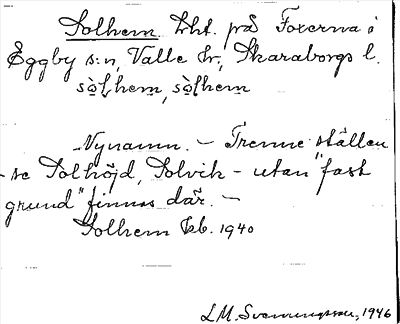 Solhem lht. på Foxerna i
Eggby s:n, Valle hr, Skaraborgs l.
sò̀lhem, sòlhem
Nynamn. – Trenne ställen
– se Solhöjd, Solvik – utan "fast
grund" finnas där. –
Solhem kb. 1940
L.M. Svenungsson, 1946